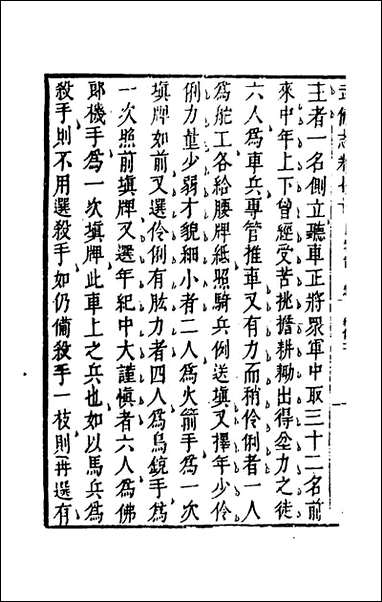 主者一名側立聽車正將衆軍中取三十二名前
來中年上下曾經受苦挑擔耕耡出得坌力之徒
六人爲車兵專管推車又有力而稍伶俐者一人
爲舵工各給腰牌紙照騎兵例送塡又擇年少伶
俐力量少弱才貌細小者二人爲火箭手爲一次
塡牌如前又選伶俐有肱力者四人爲鳥銃手爲
一次照前塡牌又選年紀中大謹愼者六人爲佛
郎機手爲一次塡牌此車上之兵也如以馬兵爲
殺手則不用選殺手如仍備殺手一枝則再選有